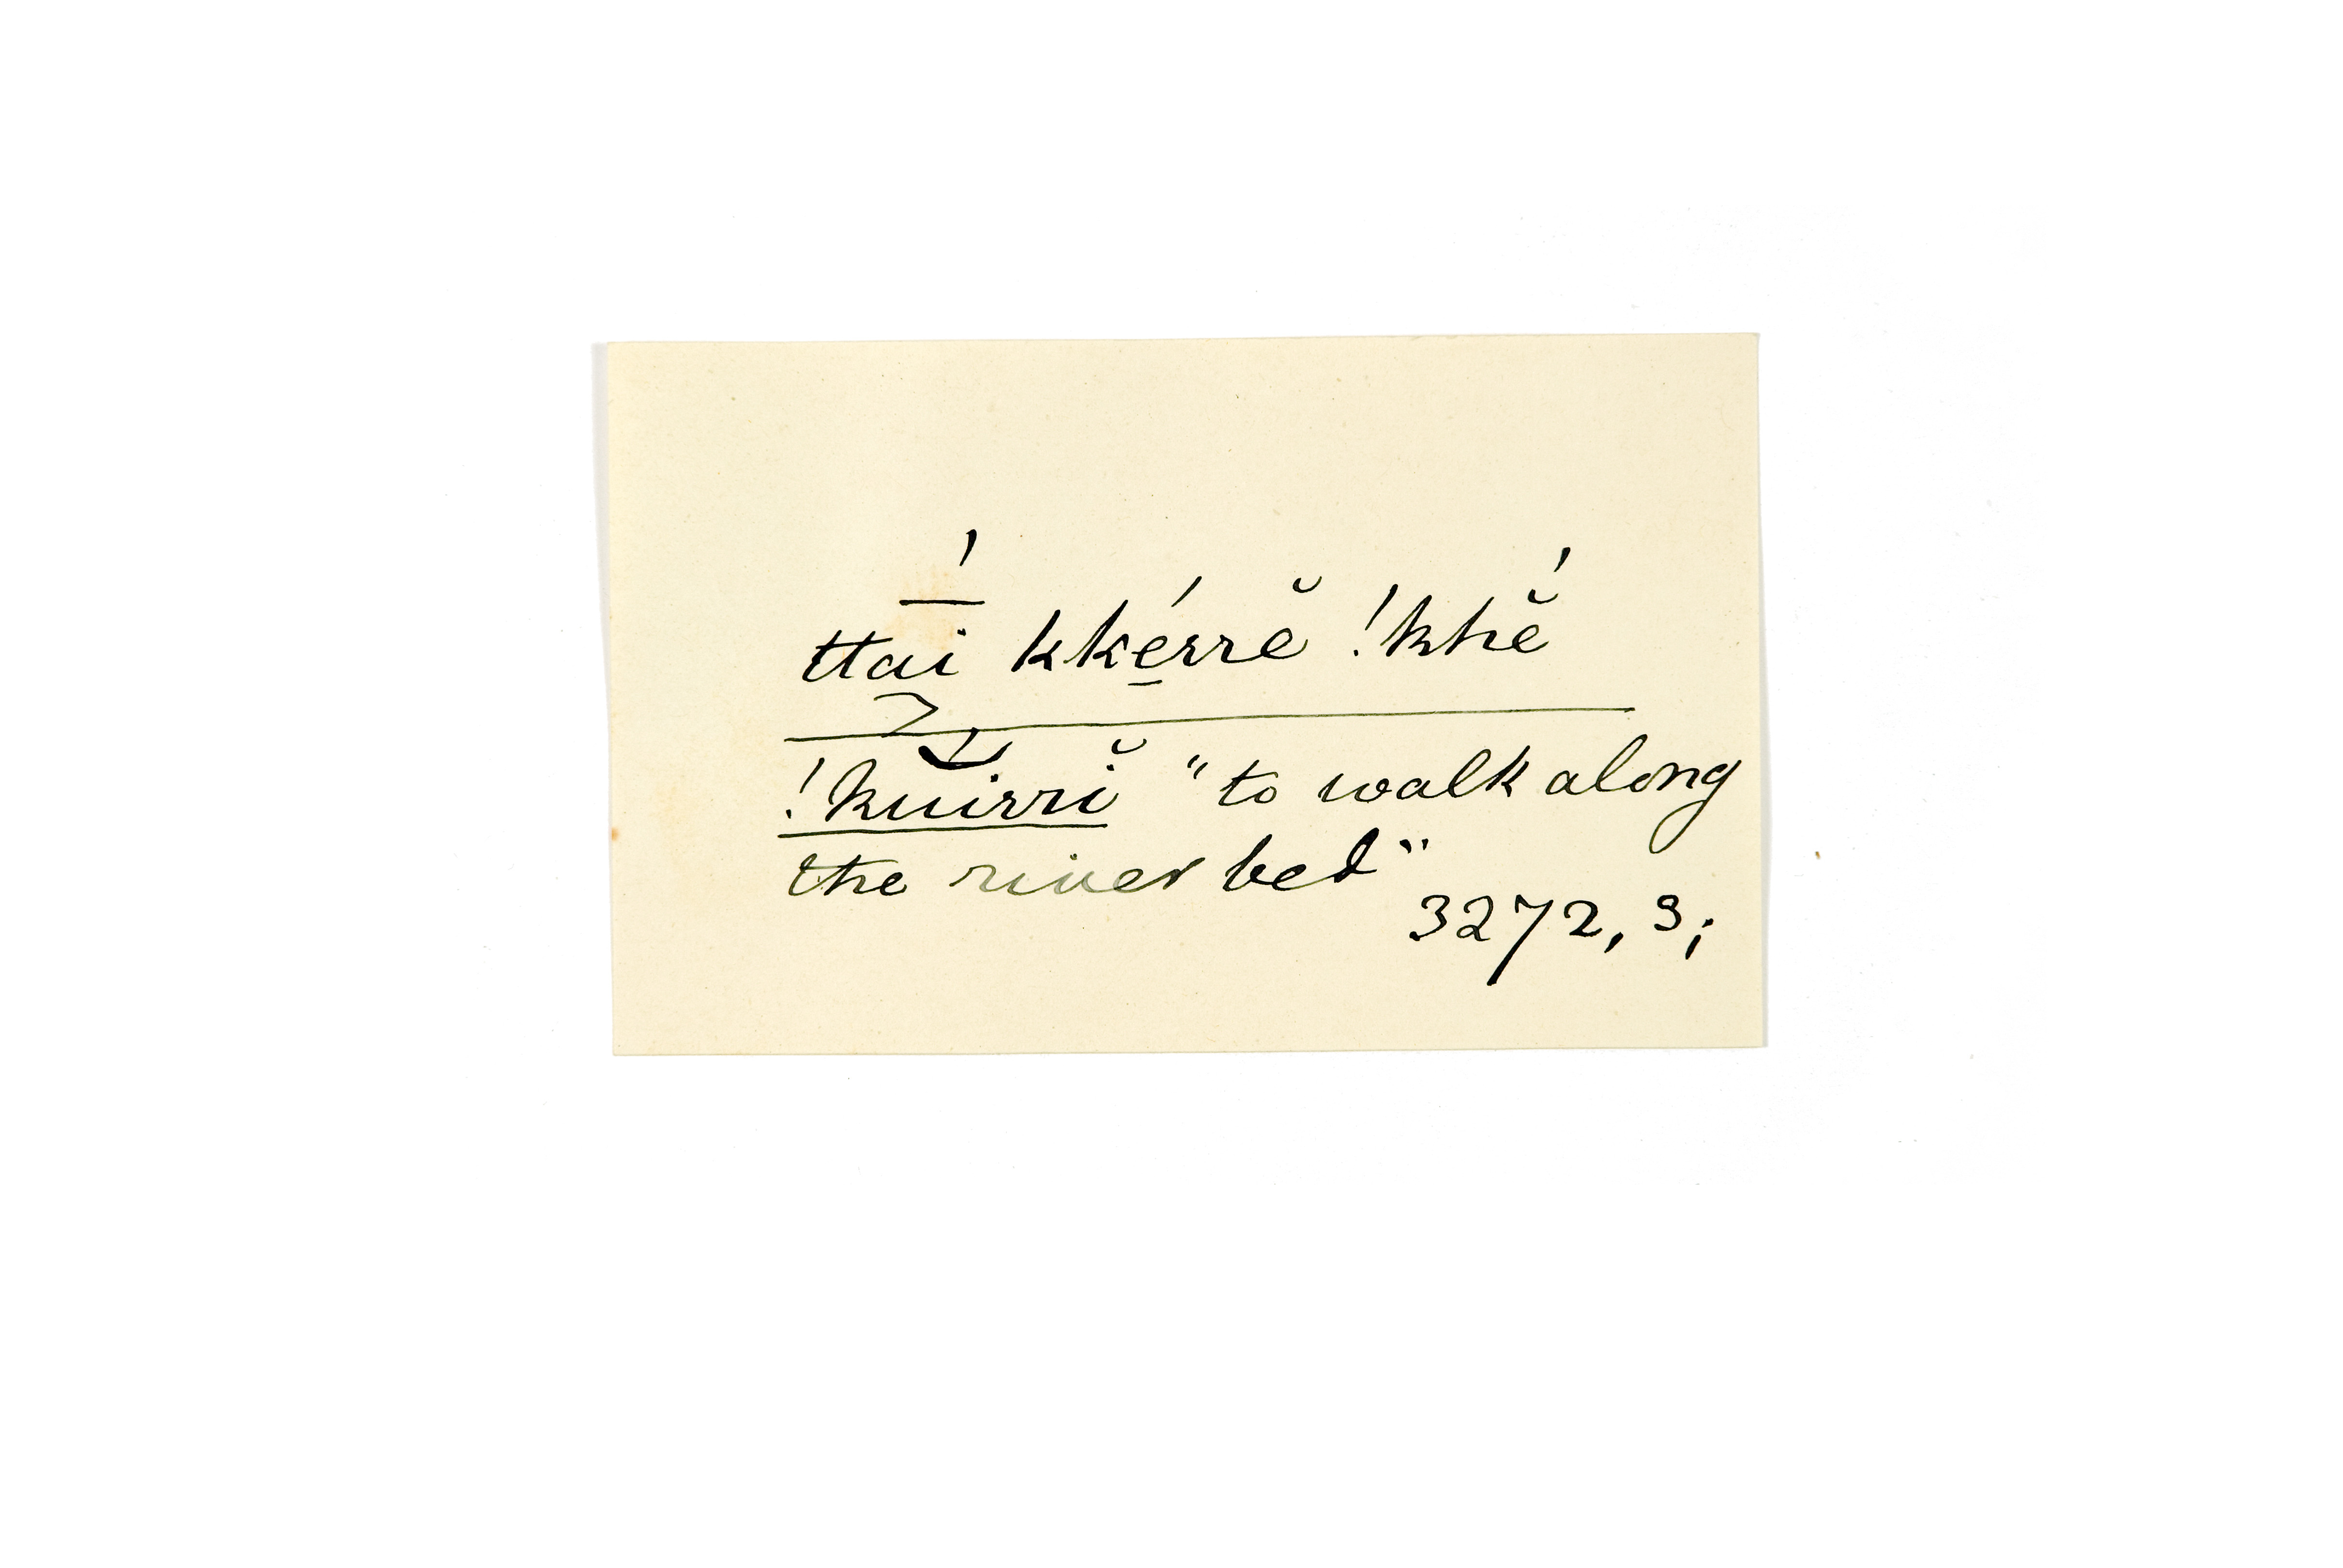 ttai̅́ kké̠rrĕ !khĕ́
!kuĭrrĭ "to walk along
the river bed"
3272, 3;